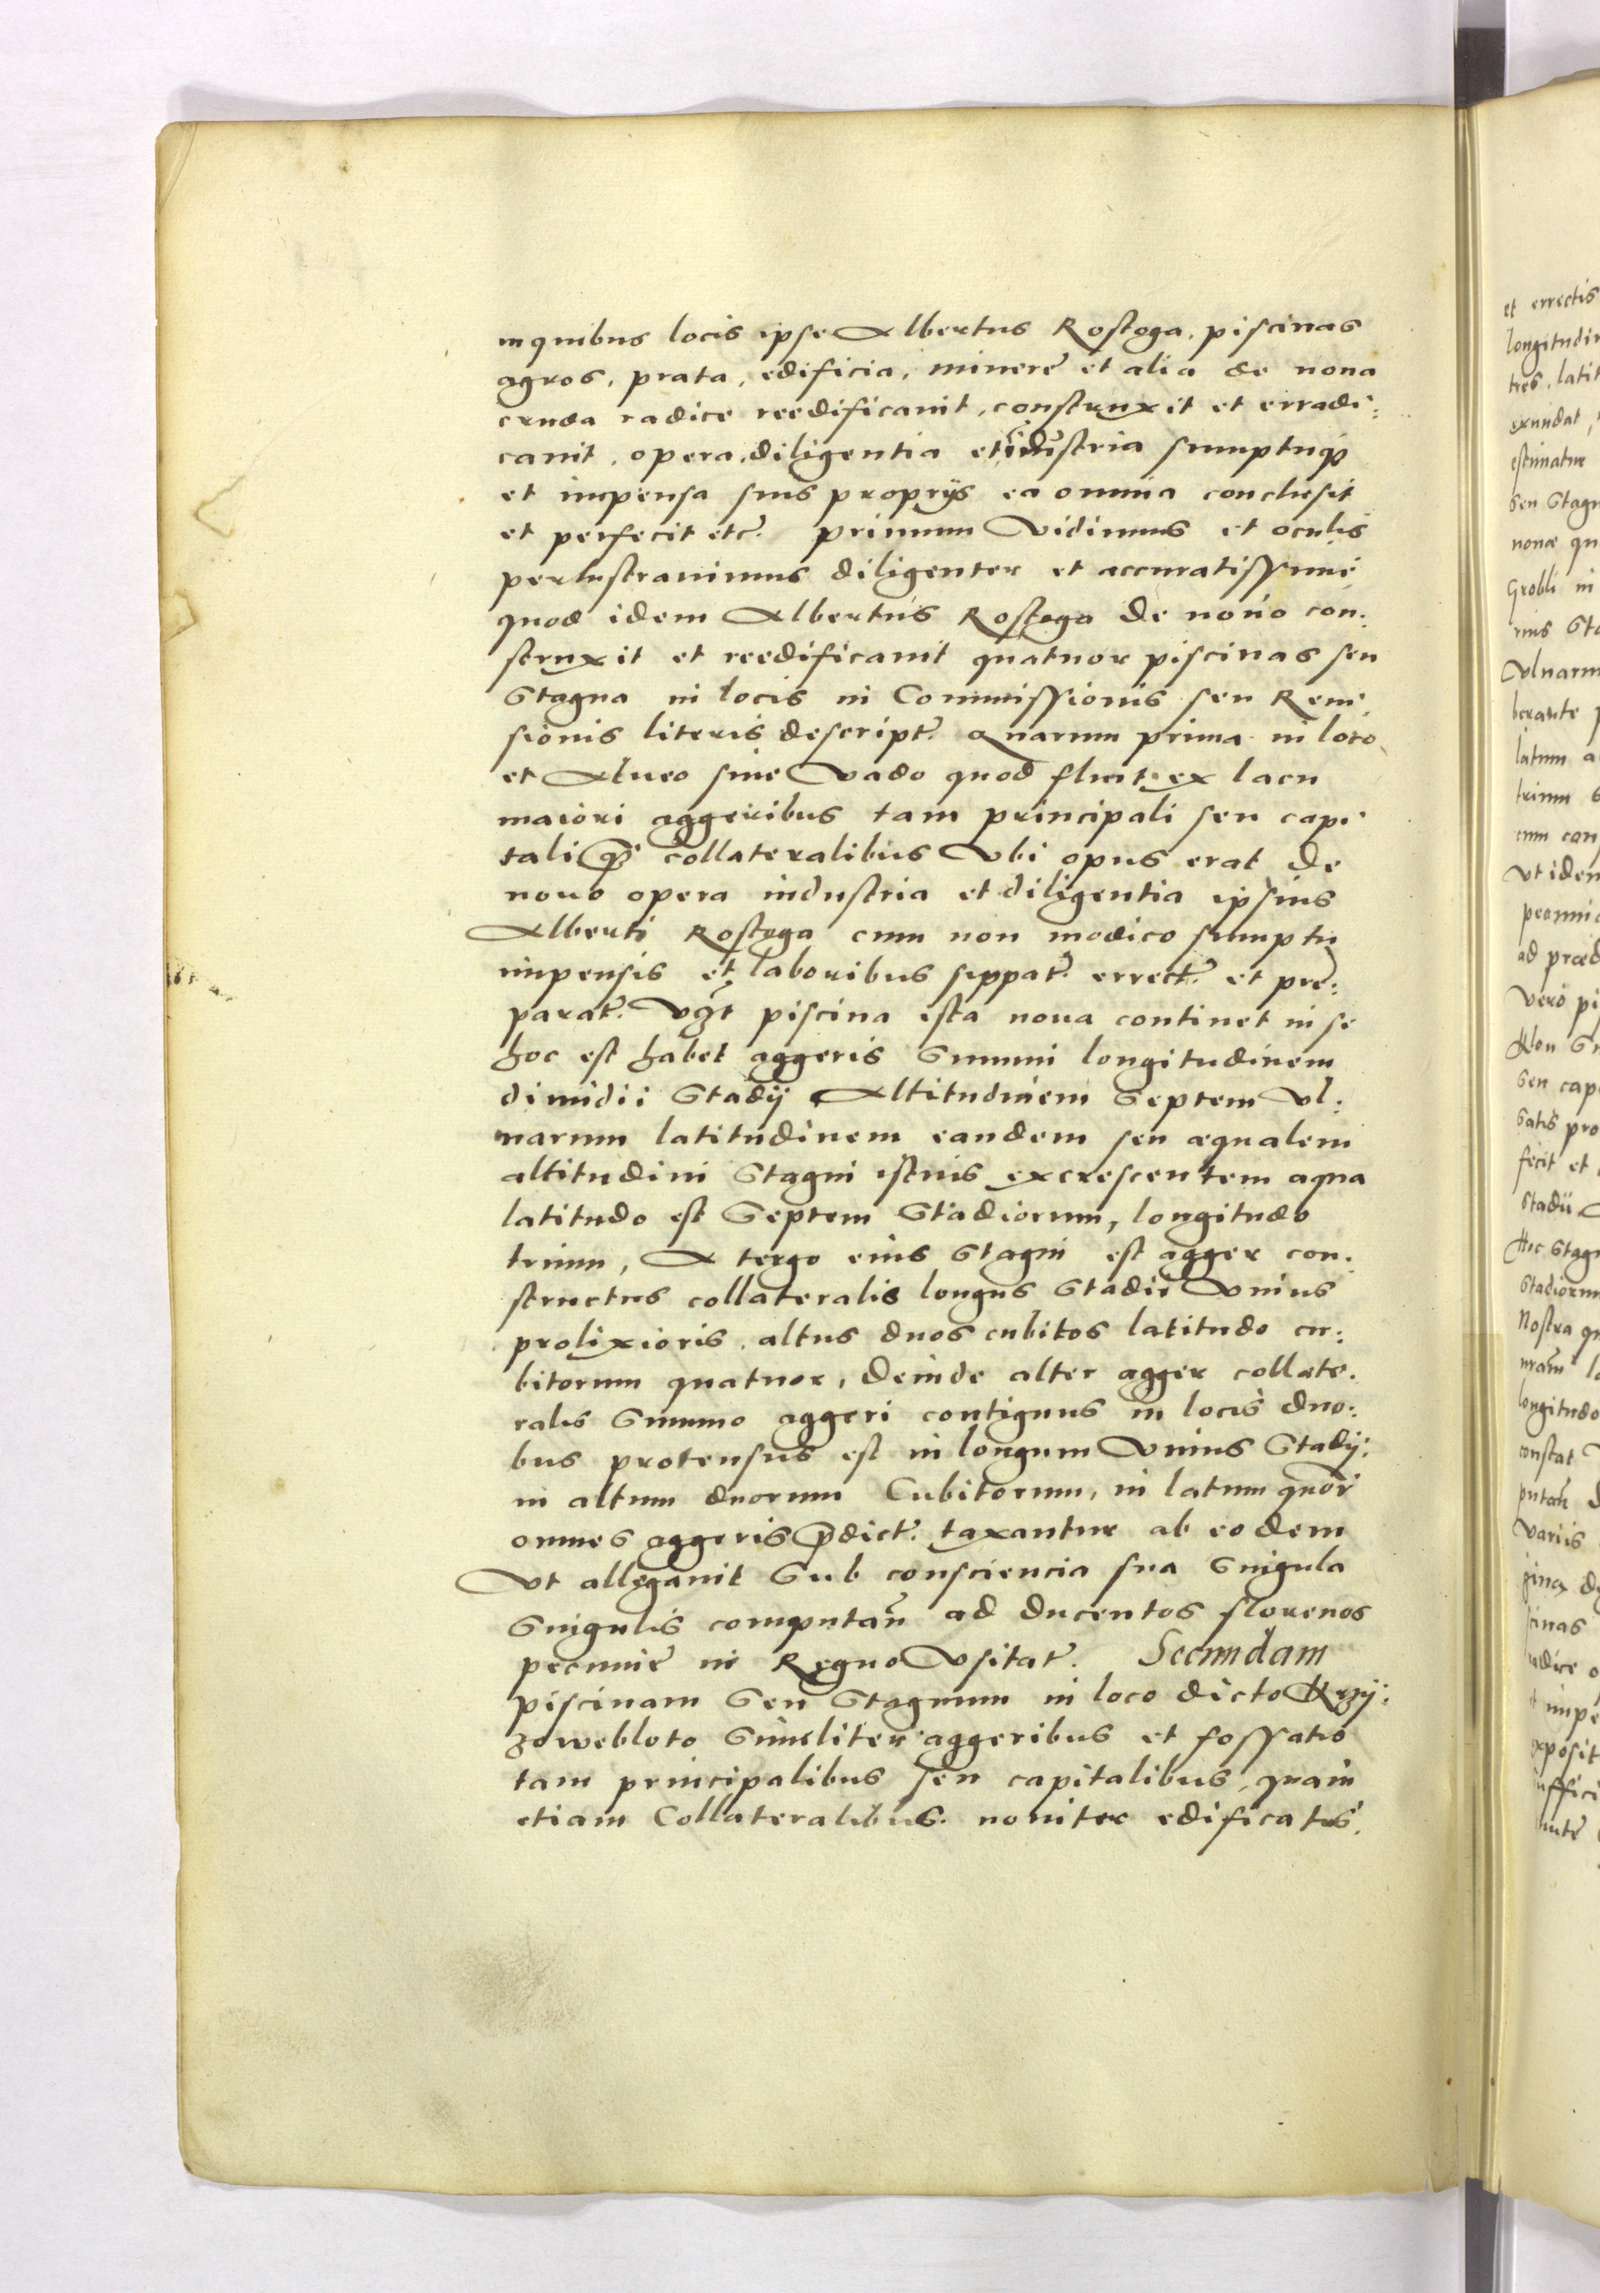 in quibus locis ipse Albertus Rostoga, piscinas
agros, prata, edificia, minere et alia de noua
cruda radice reedificauit, construxit et erradi:
cauit, opera, diligentia et industria sumptuq3
et impensa suis proprijs ea omnia conclusit
et perfecit etc. primum Vidimus et oculis
perlustrauimus diligenter et accuratissime
quod idem Albertus Rostoga de nouo con:
struxit et reedificauit quatuor piscinas seu
Stagna in locis in Commissionis seu Remi:
sionis literis descript. Quarum prima in loco
et Alueo siue Vado quod fluit ex lacu
maiori aggeribus tam principali seu capi:
tali collateralibus Vbi opus erat de
nouo opera industria et diligentia ipsius
Alberti Rostoga cum non modico sumptu
impensis et laboribus suppat. errect. et pre:
parat. piscina ista noua continet in se
hoc est habet aggeris Summi longitudinem
dimidii Stadij Altitudinem Septem Vl:
narum latitudinem eandem seu aequalem
altitudini Stagni istius excrescentem aqua
latitudo est Septem Stadiorum, longitudo
trium, A tergo eius Stagni est agger con:
structus collateralis longus Stadii Vnius
prolixioris, altus duos cubitos latitudo cu:
bitorum quatuor, deinde alter agger collate:
ralis Summo aggeri contiguus in locis duo:
bus protensus est in longum Vnius Stadij:
in altum duorum Cubitorum, in latum quor
omnes aggeris pdict. taxantur ab eodem
Vt allegauit Sub consciencia sua Singula
Singulis computan ad ducentos florenos
pecunie in Regno Vsitat. Secundam
piscinam Seu Stagnum in loco dicto Krzij:
zowebloto Similiter aggeribus et fossatis
tam principalibus seu capitalibus, quam
etiam Collateralibus. nouiter edificatis.